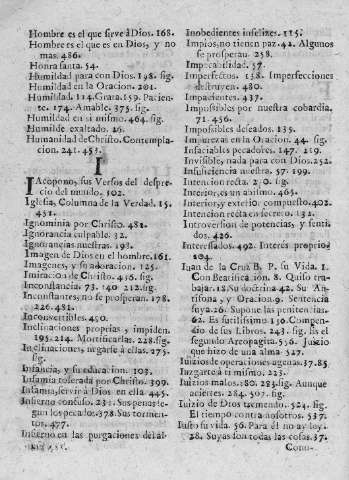 Hombre es el que sirve à Dios. 168.
Hombre es el que es en Dios, y no
mas. 486.
Honra santa. 54.
Humildad para con Dios. 198. sig.
Humildad en la Oracion. 201.
Humildad. 114. Grata. 159. Pacien-
te. 174. Amable. 375. sig.
Humildad en si mismo. 464. sig.
Humilde exaltado. 26.
Humanidad de Christo. Contempla-
cion. 241. 453.
I
IAcopono, sus Versos del despre-
cio del mundo. 102.
Iglesia, Columna de la Verdad. 15.
451.
Ignominia por Christo. 482.
Ignorancia culpable. 32.
Ignorancias nuestras. 193.
Imagen de Dios en el hombre. 161.
Imagenes, y su adoracion. 125.
Imitacion de Christo. 416. sig.
Inconstancia. 73. 140. 212. sig.
Inconstantes, no se prosperan. 178.
226. 481.
Inconvertibles. 450.
Inclinaciones proprias, impiden.
195. 214. Mortificarlas. 228. sig.
Inclinaciones, negarse à ellas. 275.
sig.
Infancia, y su educacion. 103.
Infamia tolerada por Christo. 399.
Infamia, servir à Dios en ella. 445.
Infierno confuso. 231. Sus penas le-
gun los pecados. 378. Sus tormen-
tos. 477.
Infierno en las purgaciones del al-
Inobedientes infelizes. 115.
Impios, no tienen paz. 42. Algunos
se prosperan. 258.
Impecabilidad. 57.
Imperfectos. 158. Imperfecciones
destruyen. 480.
Impacientes. 437.
Impossibles por nuestra cobardia.
71. 456.
Impossibles deseados. 135.
Impurezas en la Oracion. 44. sig.
Insaciables pecadores. 147. 219.
Invisible, nada para con Dios. 252.
Insuficiencia nuestra. 57. 199.
Intencion recta. sig.
Interior, es un abismo. 465.
Interior, y exterior compuesto. 402.
Intencion recta en secreto. 132.
Introversion de potencias, y senti-
dos. 426.
Interessados. 492. Interès proprio
104.
Iuan de la Cruz B. P. su Vida. 1.
Con Beatificacion. 8. Quiso tra-
bajar. 18. Su doctrina 42. Su An-
tifona, y Oracion. 9. Sentencia
suya. 26. Supone las penitentes.
62. Es sutilissimo 130. Compen-
dio de sus Libros. 243. sig. Es el
segundo Areopagita. 556. Juizio
que hizo de una alma. 527.
Iuizios de operaciones agenas. 37. 85.
Iuzgarte à ti mismo. 223.
Iuizios malos. 80. 283. sig. Aunque
aciertes. 284. 507. sig.
Iuizio de Dios tremendo. 524. sig.
El tiempo contra nosotros. 537.
Iusto su vida. 56. Para èl no ay ley.
28. Suyas son todas las cosas. 37.
Com-